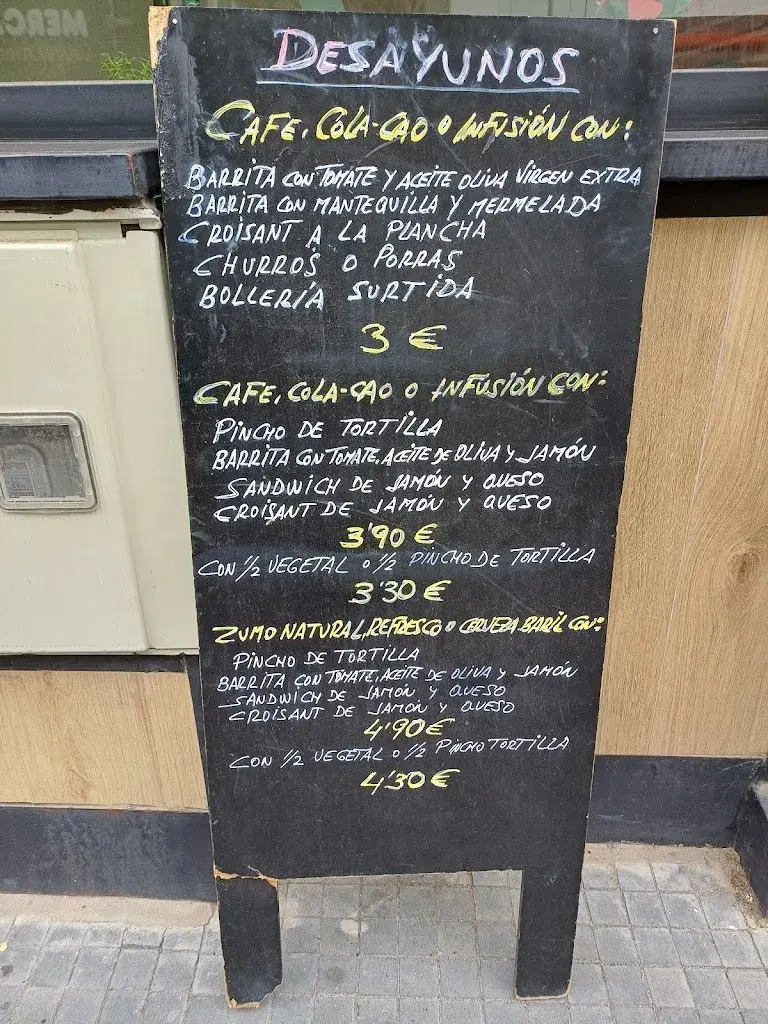 MERC
DESAYUNOS
CAFE, COLA-CAO O INFUSIÓN CON:
BARRITA CON TOMATE Y ACEITE OLIVA VIRGEN EXTRA
BARRITA CON MANTEQUILLA Y MERMELADA
CROISANT A LA PLANCHA
CHURROS O PORRAS
BOLLERÍA SURTIDA
3 €
CAFE, COLA-CAO O INFUSIÓN CON:
PINCHO DE TORTILLA
BARRITA CON TOMATE, ACEITE DE OLIVA Y JAMÓN
SANDWICH DE JAMÓN Y QUESO
CROISANT DE JAMÓN Y QUESO
3'90 €
CON 1/2 VEGETAL O 1/2 PINCHO DE TORTILLA
3'30 €
ZUMO NATURAL, REFRESCO O CERVEZA BARIL CON:
PINCHO DE TORTILLA
BARRITA CON TOMATE, ACEITE DE OLIVA Y JAMÓN
SANDWICH DE JAMÓN Y QUESO
CROISANT DE JAMÓN Y QUESO
4'90 €
CON 1/2 VEGETAL O 1/2 PINCHO TORTILLA
4'30 €